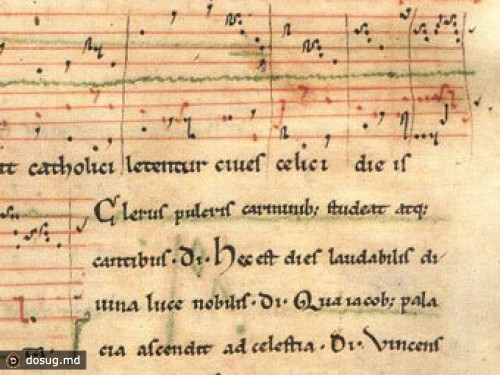 it catholici letentur ciues celici die is
Clerus pulcris carminib; studeat atq;
cantibus · Di · Hec est dies laudabilis di
uina luce nobilis · Di · Qua iacob; pala
cia ascendit ad celestia · Di · Vincens
dosug.md